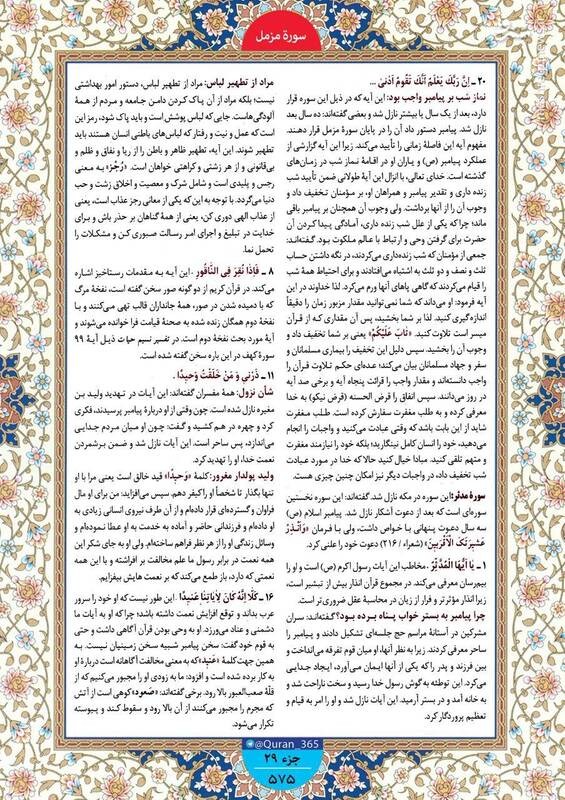 سورۀ مزمل
۲۰ ـ إِنَّ رَبَّكَ يَعْلَمُ أَنَّكَ تَقُومُ أَدْنَىٰ ...
نماز شب بر پیامبر واجب بود: این آیه که در ذیل این سوره قرار
دارد، بعد از یک سال یا بیشتر نازل شد و بعضی گفته‌اند: ده سال بعد
نازل شد. پیامبر دستور داد آن را در پایان سورۀ مزمل قرار دهند.
مفهوم آیه این فاصلۀ زمانی را تأیید می‌کند. زیرا این آیه گزارشی از
عملکرد پیامبر (ص) و یاران او در اقامۀ نماز شب در زمان‌های
گذشته است. خدای تعالی، با انزال این آیۀ طولانی ضمن تأیید شب
زنده داری و تقدیر پیامبر و همراهان او، بر مؤمنان تخفیف داد و
وجوب آن را از آنها برداشت. ولی وجوب آن همچنان بر پیامبر باقی
ماند؛ چرا که یکی از علل شب زنده داری، آمادگی پیدا کردن آن
حضرت برای گرفتن وحی و ارتباط با عالم ملکوت بود. گفته‌اند:
جمعی از مؤمنان که شب زنده‌داری می‌کردند، در نگه داشتن حساب
ثلث و نصف و دو ثلث به اشتباه می‌افتادند و برای احتیاط همۀ شب
را قیام می‌کردند که گاهی پاهای آنها ورم می‌کرد. لذا خداوند در این
آیه فرمود: او می‌داند که شما نمی توانید مقدار مزبور زمان را دقیقاً
اندازه‌گیری کنید. لذا بر شما بخشید، پس آن مقداری که از قرآن
میسر است تلاوت کنید. «تَابَ عَلَيْكُمْ» یعنی بر شما تخفیف داد و
وجوب آن را بخشید. سپس دلیل این تخفیف را بیماری مسلمانان و
سفر و جهاد مسلمانان بیان می‌کند؛ عده‌ای حکم تلاوت قرآن را
واجب دانسته‌اند و مقدار واجب را قرائت پنجاه آیه و برخی صد آیه
در روز می‌دانند. سپس انفاق را قرض الحسنه (قرض نیکو) به خدا
معرفی کرده و به طلب مغفرت سفارش کرده است. طلب مغفرت
شاید از این بابت باشد که وقتی عبادت می‌کنید و واجبات را انجام
می‌دهید، خود را انسان کامل نینگارید؛ بلکه خود را نیازمند مغفرت
و متهم تلقی کنید. مبادا خیال کنید حالا که خدا در مورد عبادت
شب تخفیف داد، در واجبات دیگر نیز امکان چنین چیزی هست.
سورۀ مدثر: این سوره در مکه نازل شد. گفته‌اند: این سوره نخستین
سوره‌ای است که بعد از دعوت آشکار نازل شد. پیامبر اسلام (ص)
سه سال دعوت پنهانی با خواص داشت، ولی با فرمان «وَأَنذِرْ
عَشِيرَتَكَ الْأَقْرَبِينَ» (شعراء / ۲۱۶) دعوت خود را علنی کرد.
۱ ـ يَا أَيُّهَا الْمُدَّثِّرُ . مخاطب این آیات رسول اکرم (ص) است و او را
بیم‌رسان معرفی می‌کند. در مجموع قرآن انذار بیش از تبشیر است،
زیرا انذار مؤثرتر و فرار از زیان در محاسبۀ عقل ضروری‌تر است.
چرا پیامبر به بستر خواب پناه برده بود؟ گفته‌اند: سران
مشرکین در آستانۀ مراسم حج جلسه‌ای تشکیل دادند و پیامبر را
ساحر معرفی کردند. زیرا به نظر آنها، او میان قوم تفرقه می‌انداخت و
بین فرزند و پدر را که یکی از آنها ایمان می‌آورد، ایجاد جدایی
می‌کرد. این توطئه به گوش رسول خدا رسید و سخت ناراحت شد و
به خانه آمد و در بستر آرمید. این آیات نازل شد و او را امر به قیام و
تعظیم پروردگار کرد.
مراد از تطهیر لباس: مراد از تطهیر لباس، دستور امور بهداشتی
نیست؛ بلکه مراد از آن پاک کردن دامن جامعه و مردم از همۀ
آلودگی‌هاست. جایی که لباس پوشش است و باید پاک شود، رمز این
است که عمل و نیت و رفتار که لباس‌های باطنی انسان هستند باید
تطهیر شوند. این آیه، تطهیر ظاهر و باطن را از ریا و نفاق و ظلم و
بی‌قانونی و از هر زشتی و کراهتی خواهان است. «رُجْزَ» به معنی
رجس و پلیدی است و شامل شرک و معصیت و اخلاق زشت و حب
دنیا می‌گردد. با توجه به این که یکی از معانی رجز عذاب است، یعنی
از عذاب الهی دوری کن، یعنی از همۀ گناهان بر حذر باش و برای
خدایت در تبلیغ و اجرای امر رسالت صبوری کن و مشکلات را
تحمل نما.
۸ ـ فَإِذَا نُقِرَ فِي النَّاقُورِ . این آیه به مقدمات رستاخیز اشاره
می‌کند. در قرآن کریم از دو گونه صور سخن گفته است، نفخۀ مرگ
که با دمیده شدن در صور، همۀ جانداران قالب تهی می‌کنند و با
نفخۀ دوم همگان زنده شده به صحنۀ قیامت فرا خوانده می‌شوند و
آیۀ مورد بحث نفخۀ دوم است. در تفسر نسیم حیات ذیل آیۀ ۹۹
سورۀ کهف در این باره سخن گفته شده است.
۱۱ ـ ذَرْنِي وَ مَنْ خَلَقْتُ وَحِيدًا .
شأن نزول: همۀ مفسران گفته‌اند: این آیات در تهدید ولید بن
مغیره نازل شده است. چون وقتی از او دربارۀ پیامبر پرسیدند، فکری
کرد و چهره در هم کشید و گفت: چون او میان مردم جدایی
می‌اندازد، پس ساحر است. این آیات نازل شد و ضمن برشمردن
نعمت خدا، او را تهدید کرد.
ولید پولدار مغرور: کلمۀ «وَحِيدًا» قید خالق است یعنی مرا با او
تنها بگذار تا شخصاً او را کیفر دهم. سپس می‌افزاید: من برای او مال
فراوان و گسترده‌ای قرار داده‌ام و از آن طرف نیروی انسانی زیادی به
او داده‌ام و فرزندانی حاضر و آماده به خدمت به او عطا نموده‌ام و
وسائل زندگی او را از هر نظر فراهم ساخته‌ام. ولی او به جای شکر این
همه نعمت در برابر رسول ما علم مخالفت بر افراشته و با این همه
نعمتی که دارد، باز طمع می‌کند که بر نعمت هایش بیفزایم.
۱۶ ـ كَلَّا إِنَّهُ كَانَ لِآيَاتِنَا عَنِيدًا . این طور نیست که او خود را سرور
عرب بداند و توقع افزایش نعمت داشته باشد؛ چرا که او به آیات ما
دشمنی و عناد می‌ورزد. او به وحی بودن قرآن آگاهی داشت و حتی
به قوم خود گفت: سخن پیامبر شبیه سخن زمینیان نیست. به
همین جهت کلمۀ «عَنِيد» که به معنی مخالفت آگاهانه است دربارۀ او
به کار برده شده است و افزود: ما به زودی او را مجبور می‌کنیم که از
قلۀ صعب‌العبور بالا رود. برخی گفته‌اند: «صَعود» کوهی است از آتش
که مجرم را مجبور می‌کنند از آن بالا رود و سقوط کند و پیوسته
تکرار می‌شود.
@Quran_365
جزء ۲۹
۵۷۵